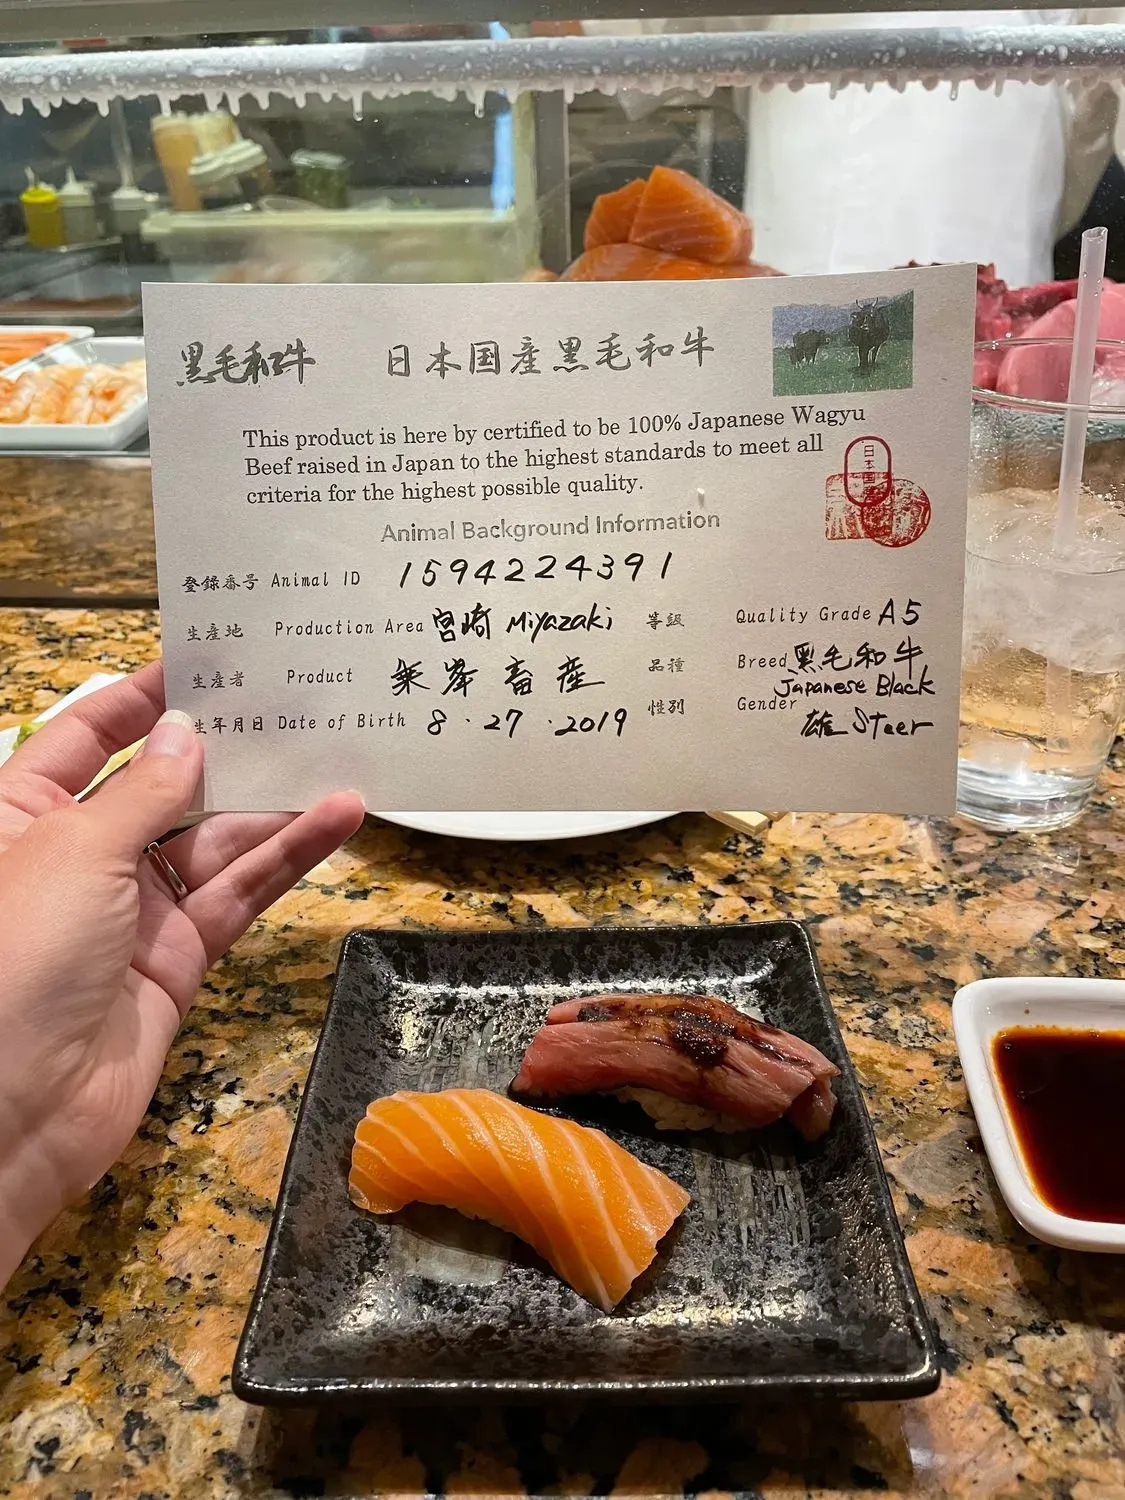 黒毛和牛 日本国産黒毛和牛
This product is here by certified to be 100% Japanese Wagyu
Beef raised in Japan to the highest standards to meet all
criteria for the highest possible quality.
日本国
Animal Background Information
登録番号 Animal ID 1594224391
生産地 Production Area 宮崎 Miyazaki 等級 Quality Grade A5
生産者 Product 乗峯畜産 品種 Breed 黒毛和牛
Japanese Black
生年月日 Date of Birth 8.27.2019 性別 Gender 雄 Steer